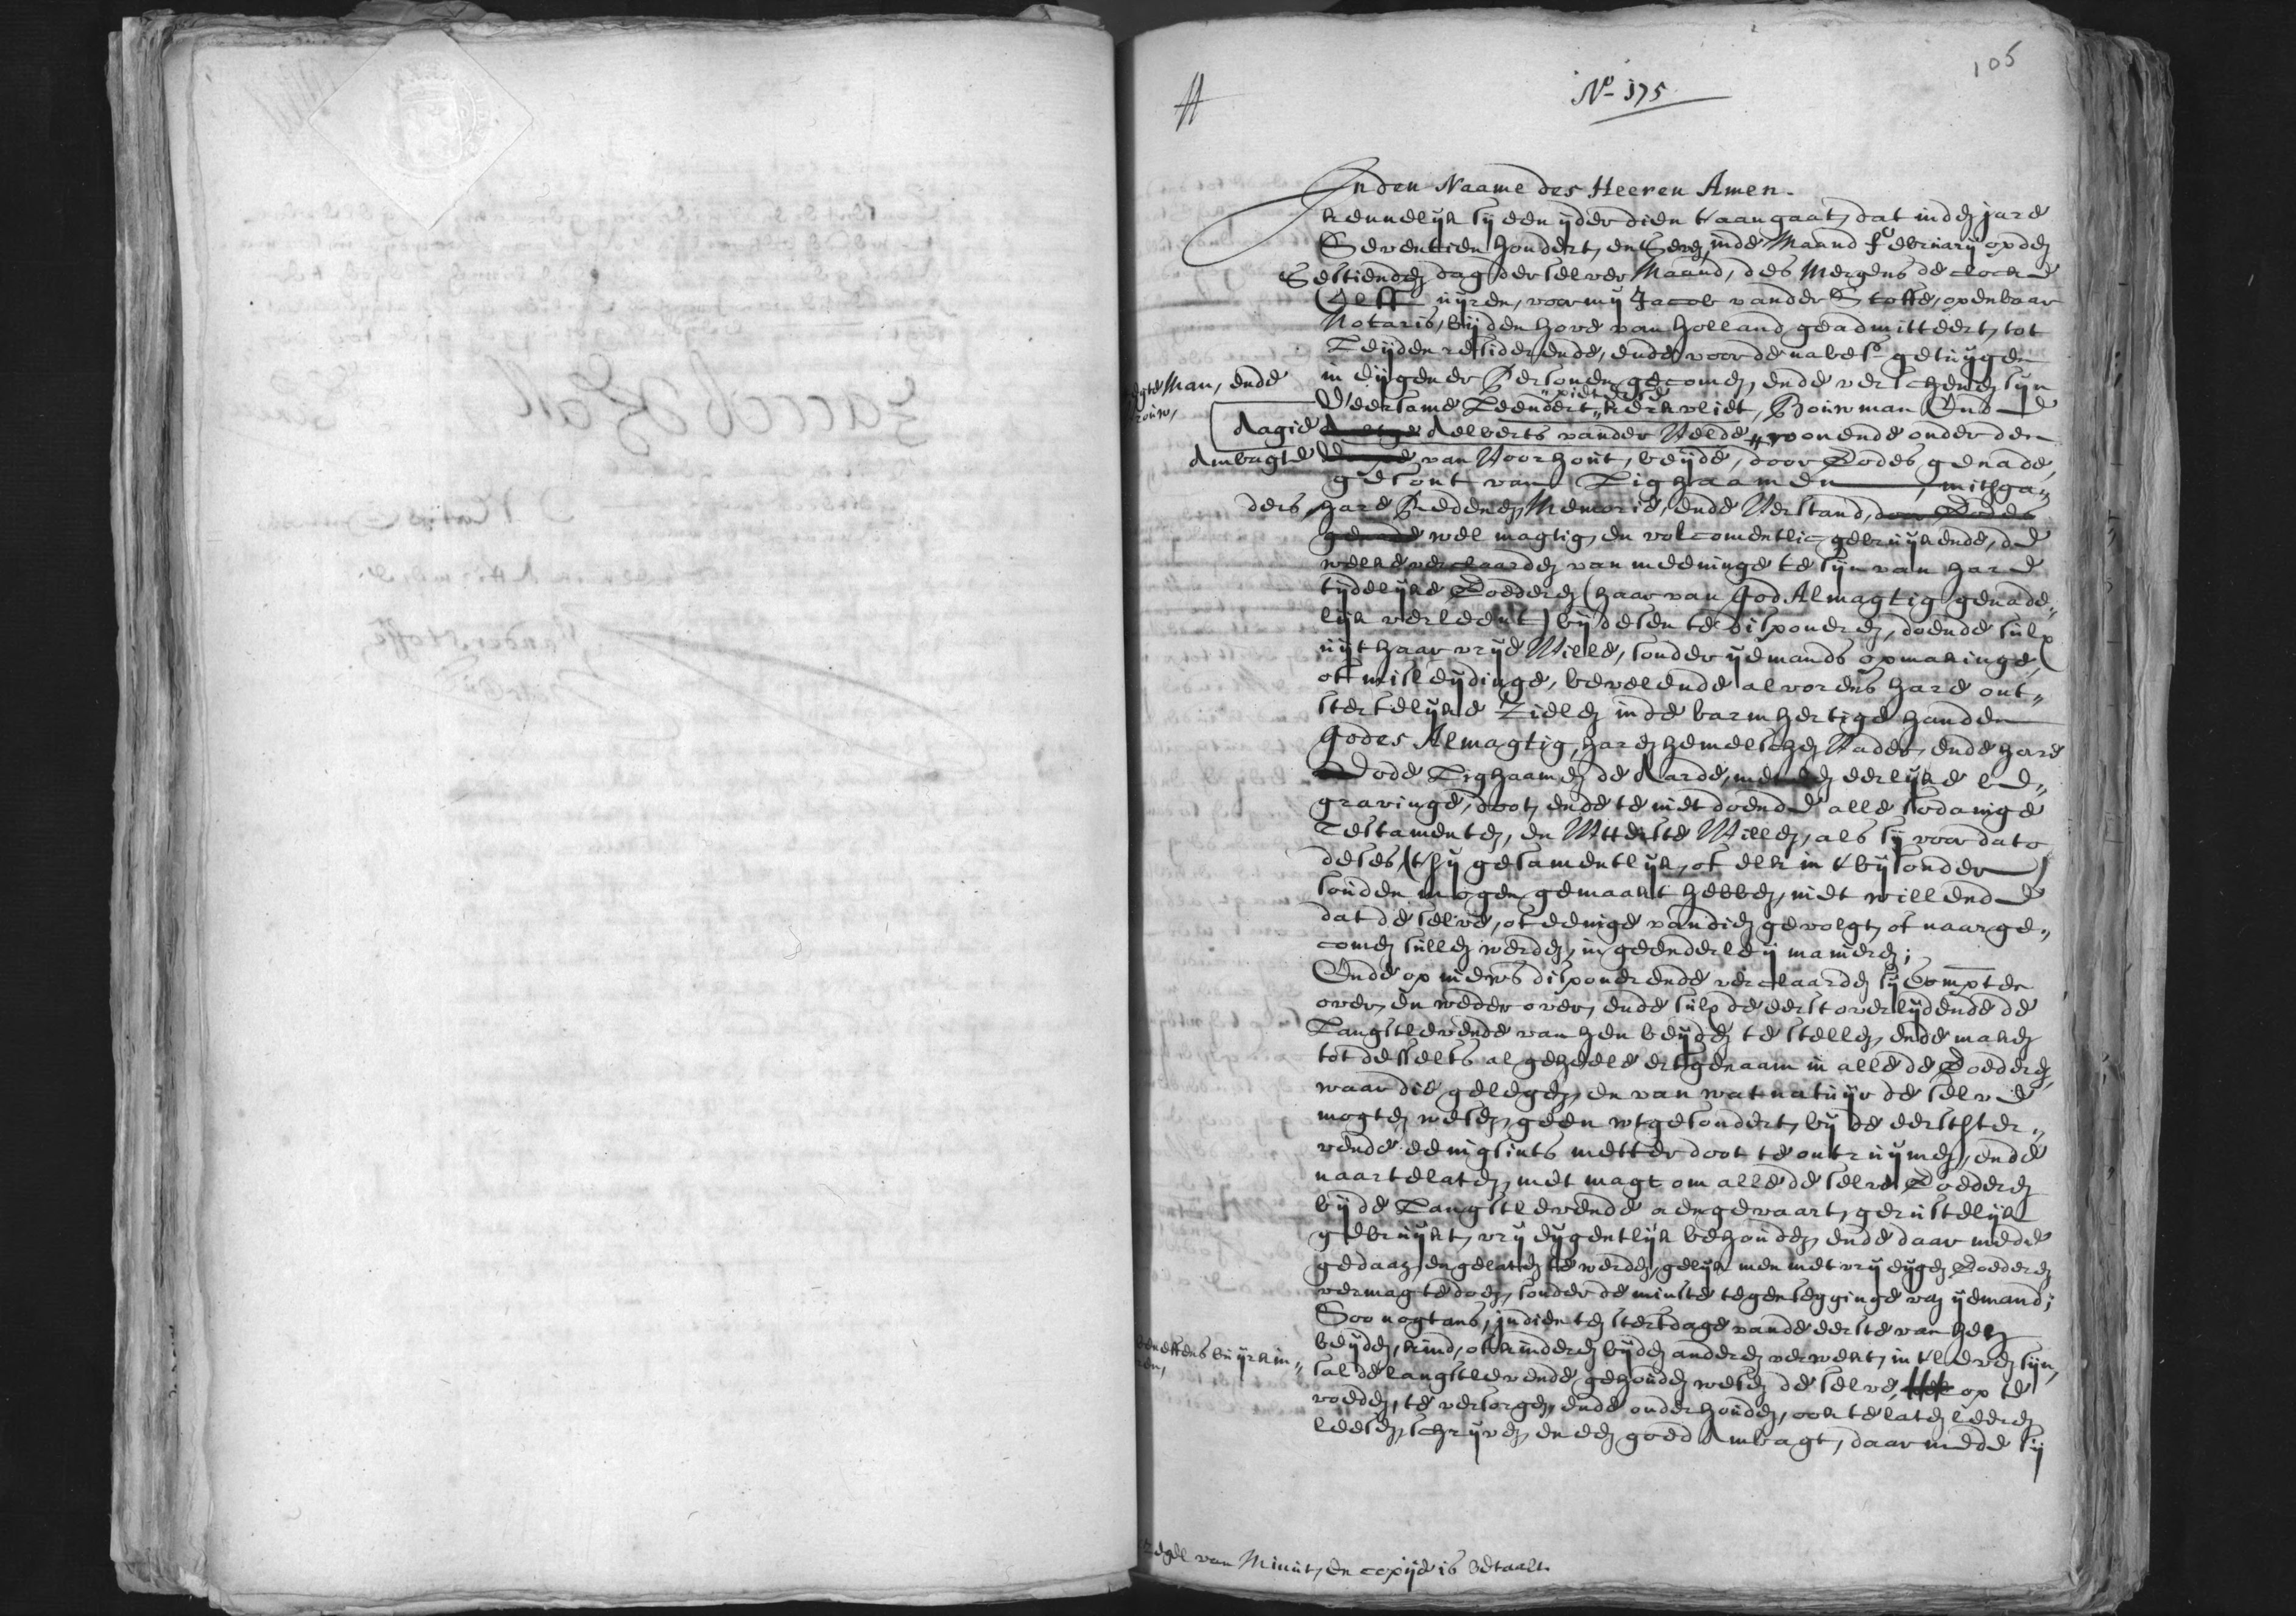 105
No 175
In den Naame des Heeren Amen.
kennelijk sij een ijder dien 't aangaat, dat inden jare
Seventien hondert, en seven, inde Maand february op den
Sestienden dag der selver Maand, des Mergens de clocke
Elff uijren, voor mij Jacob vander Stoffe, openbaar
Notaris, bij den hove van Holland geadmitteert, tot
Leijden residerende, ende voor de nabes. getuijgen
in eijgener Persoonen gecomen, ende verschenen sijn
egte Man, ende
vrouw,
pieterse
D'eersame Leendert kerkvliet, Bouwman Ende
Aagie Aelberts vander Velde woonende onder den
Ambagte van Voorhout, beijde, door Godes genade,
gesont van Lighaamen, mitsga„
ders, hare Redenen, Memorie, ende Verstand, door Godes
genade wel magtig, en volcomentlic gebruijkende, de
welke verclaarden van meeninge te sijn van hare
tijdelijke Goederen (haar van God Almagtig genade„
lijk verleent) bij desen te disponeren, doende sulx
uijt haar vrije Wille, sonder ijemands opmakinge,
of misleijdinge, bevelende alvorens hare ont„
sterfelijke Zielen inde barmhertige handen
Godes Almagtig, haren hemelschen Vader, ende hare
dode Lighaamen de Aarde, met een eerlijke be„
gravinge, doot, ende te niet doende alle sodanige
Testamenten, en Uitterste Willen, als sij voor dato
deses ('t sij gesamentlijk, of elk in 't bijsonder)
souden mogen gemaakt hebben, niet willende
dat de selve, of eenige van dien gevolgt, of naarge„
comen sullen werden, in geenderleij manieren;
Ende op nieuws disponerende verclaarden sij Comptes
over, en weder over, ende sulx de eerst overlijdende de
Langstlevende van hen beijden te stellen, ende maken
tot desselfs algeheele erfgenaam in alle de Goederen,
waar die gelegen, en van wat natuijr de selve
mogten wesen, geen uijtgesondert, bij de eerstster„
vende eenigsints metter doot te ontruijmen, ende
naar te laten, met magt om alle de selve Goederen
bij de Langstlevende aengevaart, gerustelijk
gebruijkt, vrij eijgentlijk behouden, ende daar mede
gedaan, en gelaten te werden, gelijk men met vrij eijgen Goederen
vermag te doen, sonder de minste tegensegginge van ijemand;
Soo nogtans, indien ten sterfdage vande eerste van hen
beijden, kind, of kinderen bijden anderen verwekt, in 't leven sijn,
sal de langstlevende gehouden wesen de selve, op te
voeden, te versorgen, ende onderhouden, ook te laten leeren
leesen, schrijven, en een goed Ambagt, daar mede sij
Zegel van Minut, en copije is betaalt.
Vander Stoffe